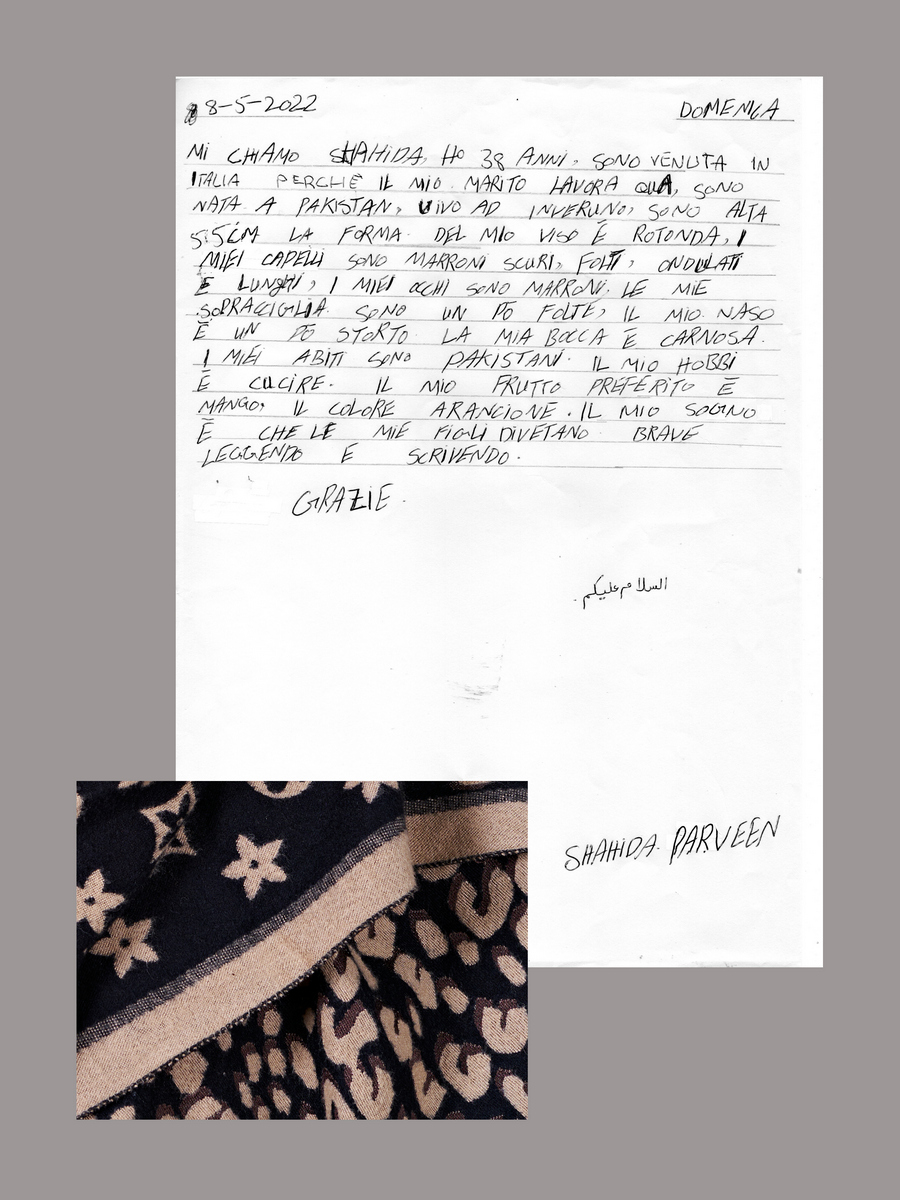 8-5-2022 DOMENICA
MI CHIAMO SHAHIDA, HO 38 ANNI, SONO VENUTA IN
ITALIA PERCHÈ IL MIO MARITO LAVORA QUA, SONO
NATA A PAKISTAN, VIVO AD INVERUNO, SONO ALTA
5,5CM LA FORMA DEL MIO VISO È ROTONDA, I
MIEI CAPELLI SONO MARRONI SCURI, FOLTI, ONDULATI
E LUNGHI, I MIEI OCCHI SONO MARRONI. LE MIE
SOPRACCIGLIA SONO UN PO FOLTE, IL MIO NASO
È UN PO STORTO. LA MIA BOCCA È CARNOSA.
I MIEI ABITI SONO PAKISTANI. IL MIO HOBBI
È CUCIRE. IL MIO FRUTTO PREFERITO È
MANGO, IL COLORE ARANCIONE. IL MIO SOGNO
È CHE LE MIE FIGLI DIVETANO BRAVE
LEGGENDO E SCRIVENDO.
GRAZIE.
السلام عليكم.
SHAHIDA PARVEEN